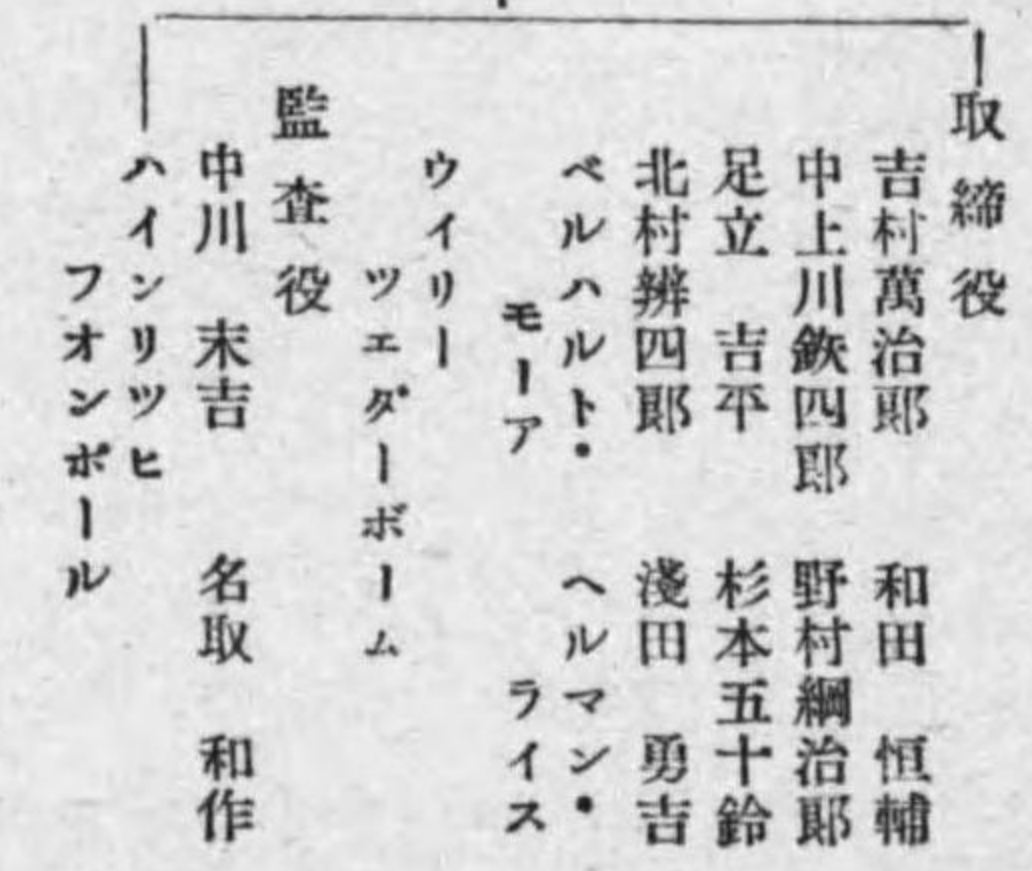 取締役
吉村萬治郎 和田 恒輔
中上川鉄四郎 野村綱治郎
足立 吉平 杉本五十鈴
北村辨四郎 淺田 勇吉
ベルハルト・ ヘルマン・
モーア ライス
ウイリー
ツエダーボーム
監査役
中川 末吉 名取 和作
ハインリツヒ
フオンポール